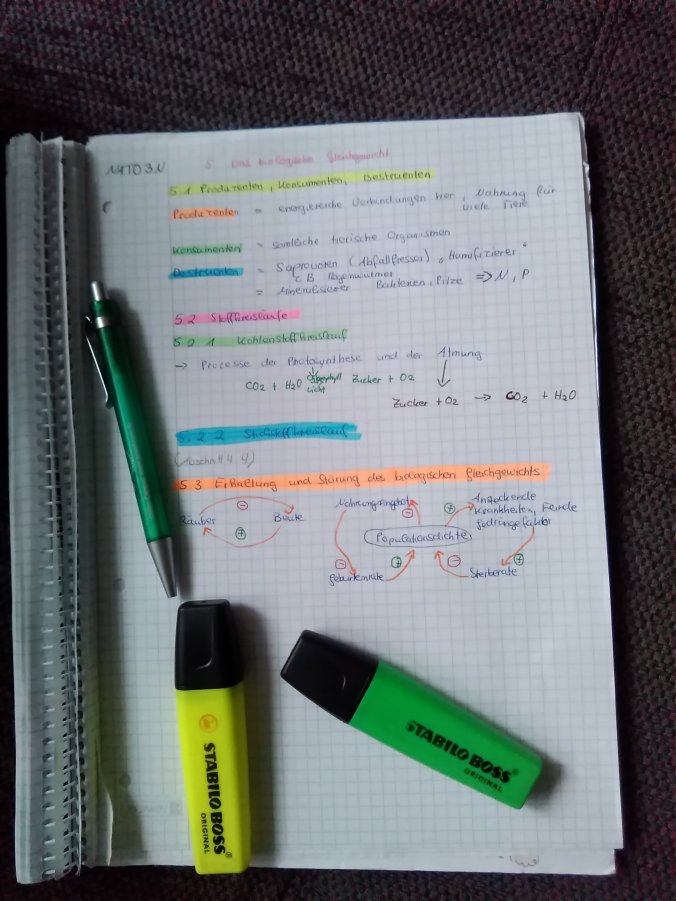 NATO3N
5 Das biologische Gleichgewicht
5.1 Produzenten, Konsumenten, Destruenten
Produzenten = energiereiche Verbindungen her, Nahrung für
viele Tiere
Konsumenten = sämliche tierische Organismen
Destruenten = Saprovoren (Abfallfresser), Humifizierer
z.B. Regenwürmer
= Mineralisierer Bakterien, Pilze => N, P
5.2 Stoffkreisläufe
5.2.1 Kohlenstoffkreislauf
→ Prozesse der Photosynthese und der Atmung
CO2 + H2O Licht Zucker + O2
Zucker + O2 → CO2 + H2O
5.2.2 Stickstoffkreislauf
(Abschnitt 4.4)
5.3 Erhaltung und Störung des biologischen Gleichgewichts
Räuber - + Beute
Nahrungsangebot - + Ansteckende
Krankheiten, Feinde
Populationsdichte
- + - +
Geburtenrate Sterberate
STABILO BOSS®
ORIGINAL
STABILO BOSS®
ORIGINAL